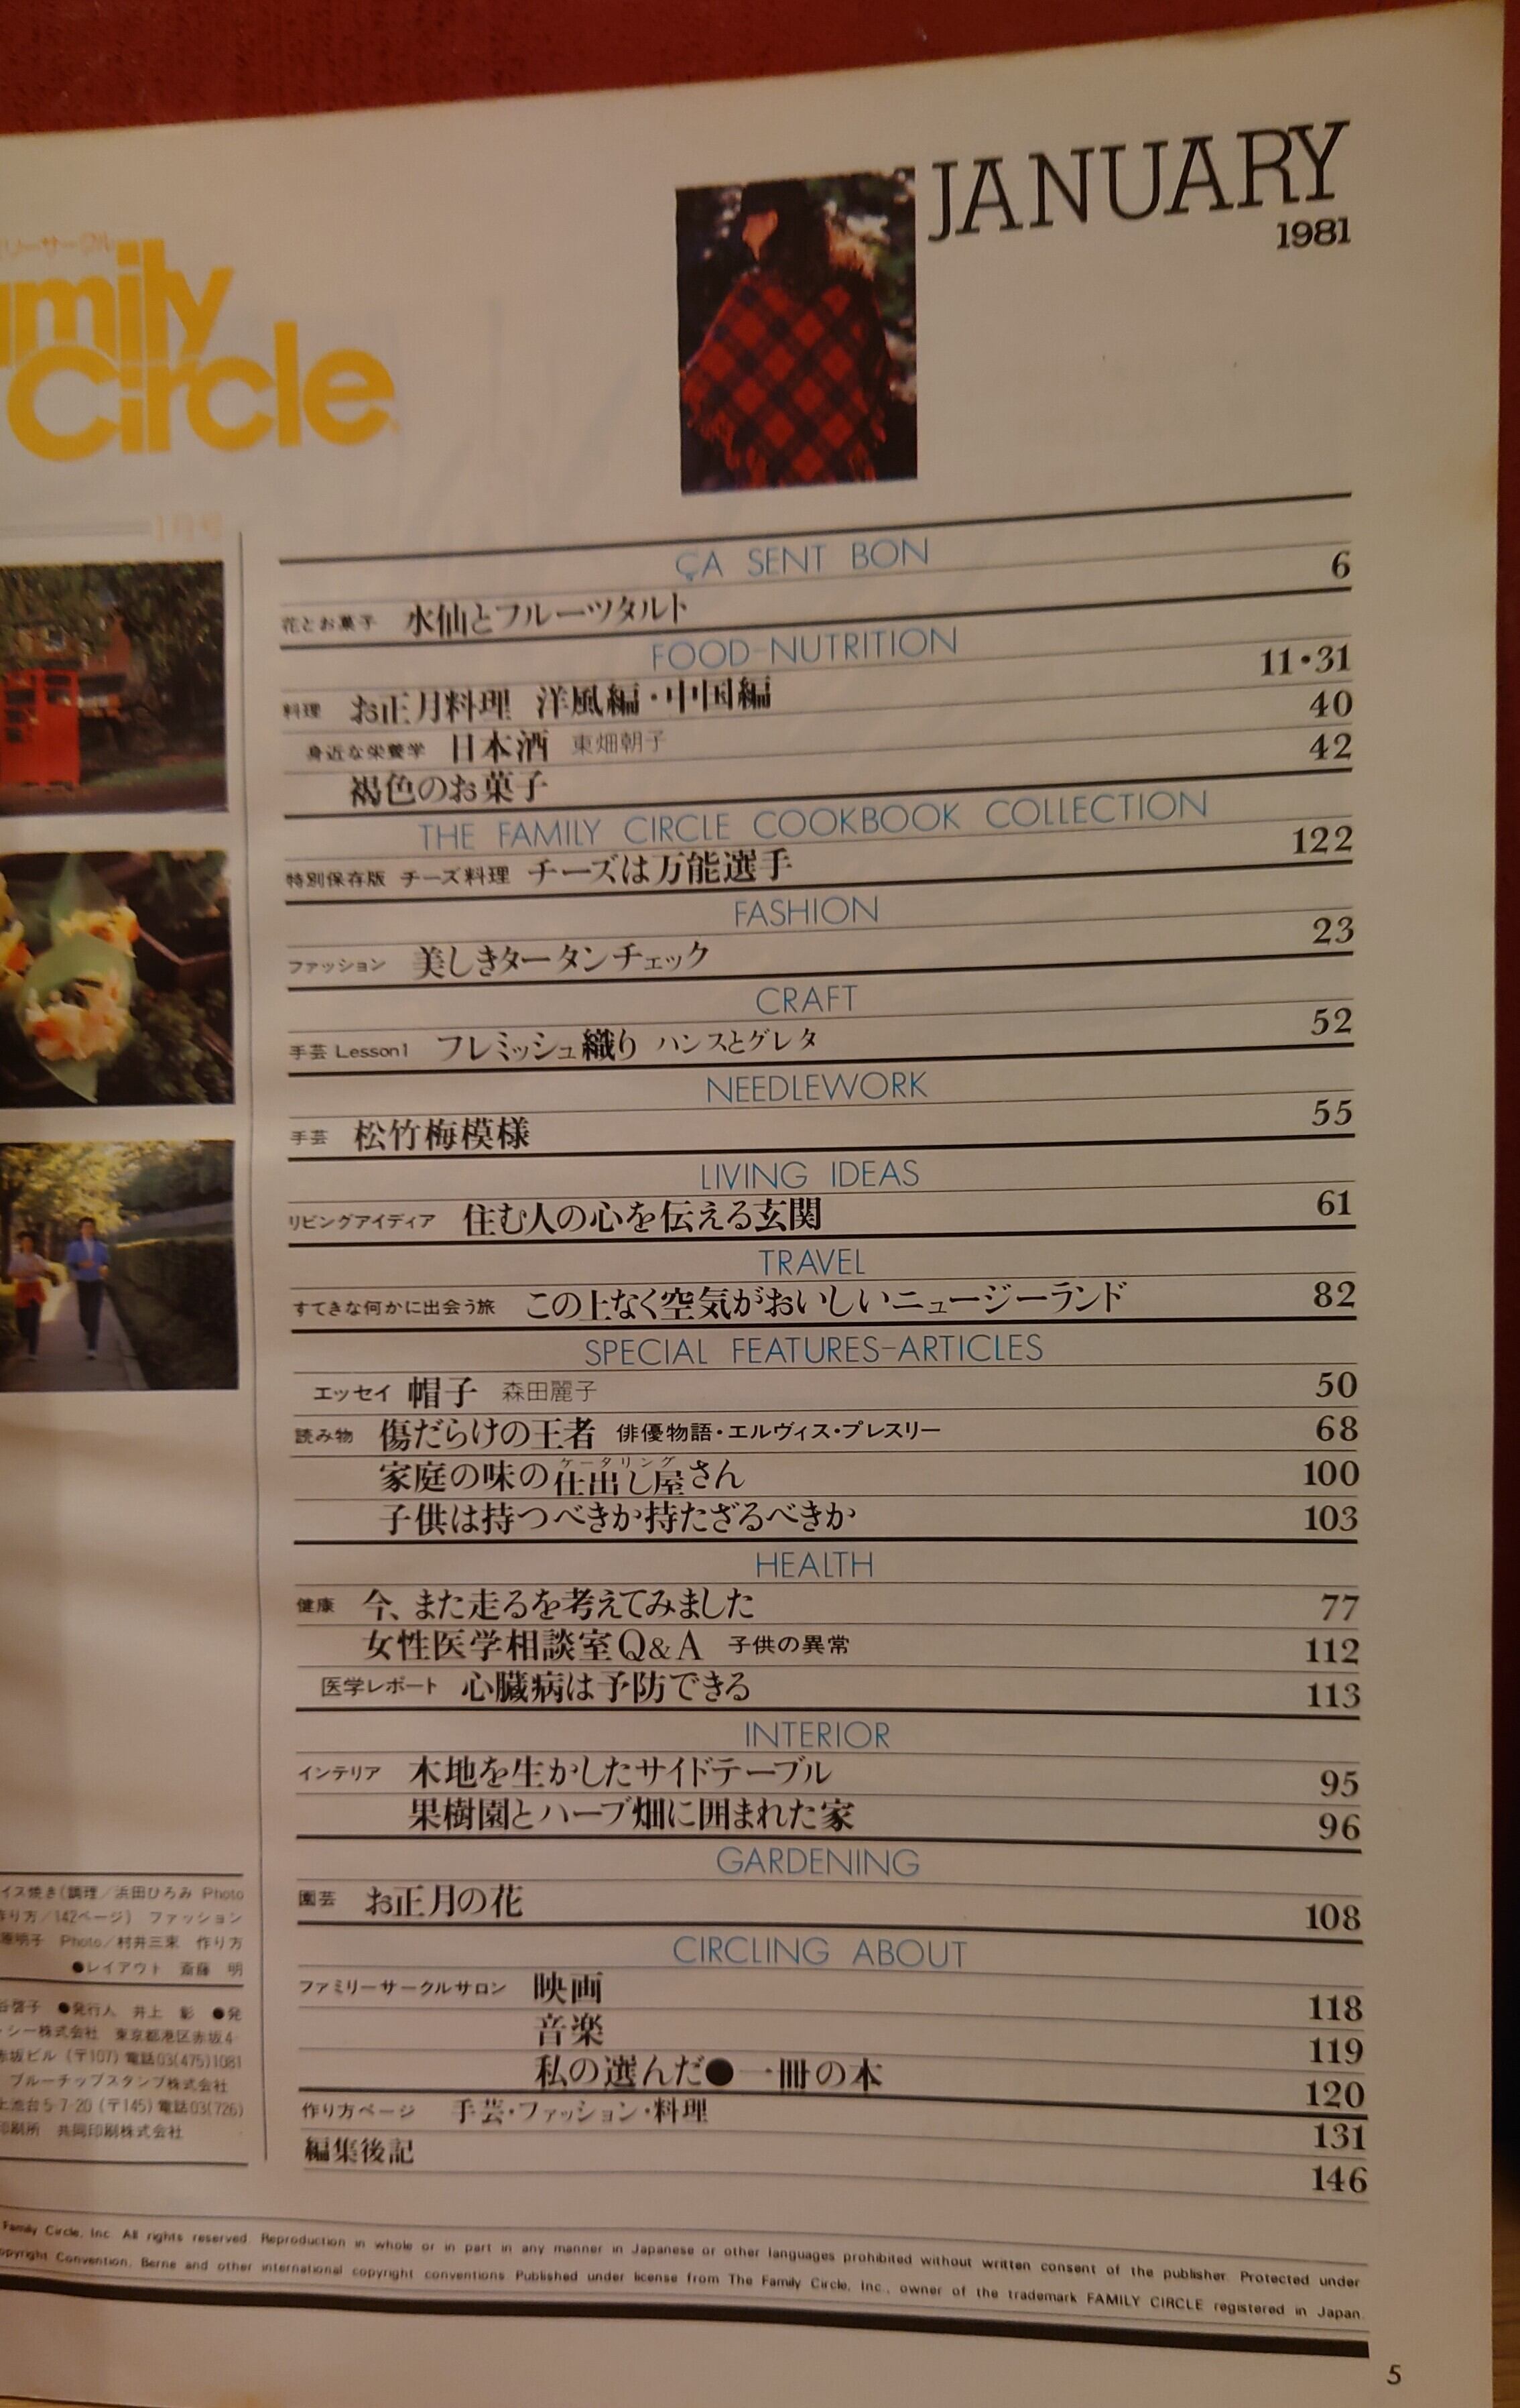 JANUARY
1981
リーサークル
mily
Circle
1月号
ÇA SENT BON
花とお菓子 水仙とフルーツタルト 6
FOOD-NUTRITION
料理 お正月料理 洋風編・中国編 11・31
身近な栄養学 日本酒 東畑朝子 40
褐色のお菓子 42
THE FAMILY CIRCLE COOKBOOK COLLECTION
特別保存版 チーズ料理 チーズは万能選手 122
FASHION
ファッション 美しきタータンチェック 23
CRAFT
手芸 Lesson1 フレミッシュ織り ハンスとグレタ 52
NEEDLEWORK
手芸 松竹梅模様 55
LIVING IDEAS
リビングアイディア 住む人の心を伝える玄関 61
TRAVEL
すてきな何かに出会う旅 この上なく空気がおいしいニュージーランド 82
SPECIAL FEATURES-ARTICLES
エッセイ 帽子 森田麗子 50
読み物 傷だらけの王者 俳優物語・エルヴィス・プレスリー 68
ケータリング
家庭の味の仕出し屋さん 100
子供は持つべきか持たざるべきか 103
HEALTH
健康 今、また走るを考えてみました 77
女性医学相談室Q&A 子供の異常 112
医学レポート 心臓病は予防できる 113
INTERIOR
インテリア 木地を生かしたサイドテーブル 95
果樹園とハーブ畑に囲まれた家 96
GARDENING
園芸 お正月の花 108
CIRCLING ABOUT
ファミリーサークルサロン 映画 118
音楽 119
私の選んだ●一冊の本 120
作り方ページ 手芸・ファッション・料理 131
編集後記 146
イス焼き(調理／浜田ひろみ Photo
作り方／142ページ) ファッション
明子 Photo／村井三東 作り方
●レイアウト 斎藤 明
啓子 ●発行人 井上 彰 ●発
・シー株式会社 東京都港区赤坂4-
赤坂ビル (〒107) 電話03(475)1081
ブルーチップスタンプ株式会社
上池台5-7-20 (〒145) 電話03(726)
印刷所 共同印刷株式会社
Family Circle, Inc. All rights reserved. Reproduction in whole or in part in any manner in Japanese or other languages prohibited without written consent of the publisher. Protected under
opyright Convention, Berne and other international copyright conventions. Published under license from The Family Circle, Inc., owner of the trademark FAMILY CIRCLE registered in Japan.
5